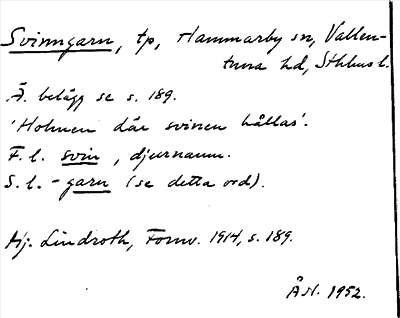 Svinngarn, tp, Hammarby sn, Vallen-
tuna hd, Sthlms l.
Ä. belägg se s. 189.
'Holmen där svinen hållas'.
F. l. svin, djurnamn.
S. l. -garn (se detta ord).
Hj. Lindroth, Fornv. 1914, s. 189.
ÅSt. 1952.